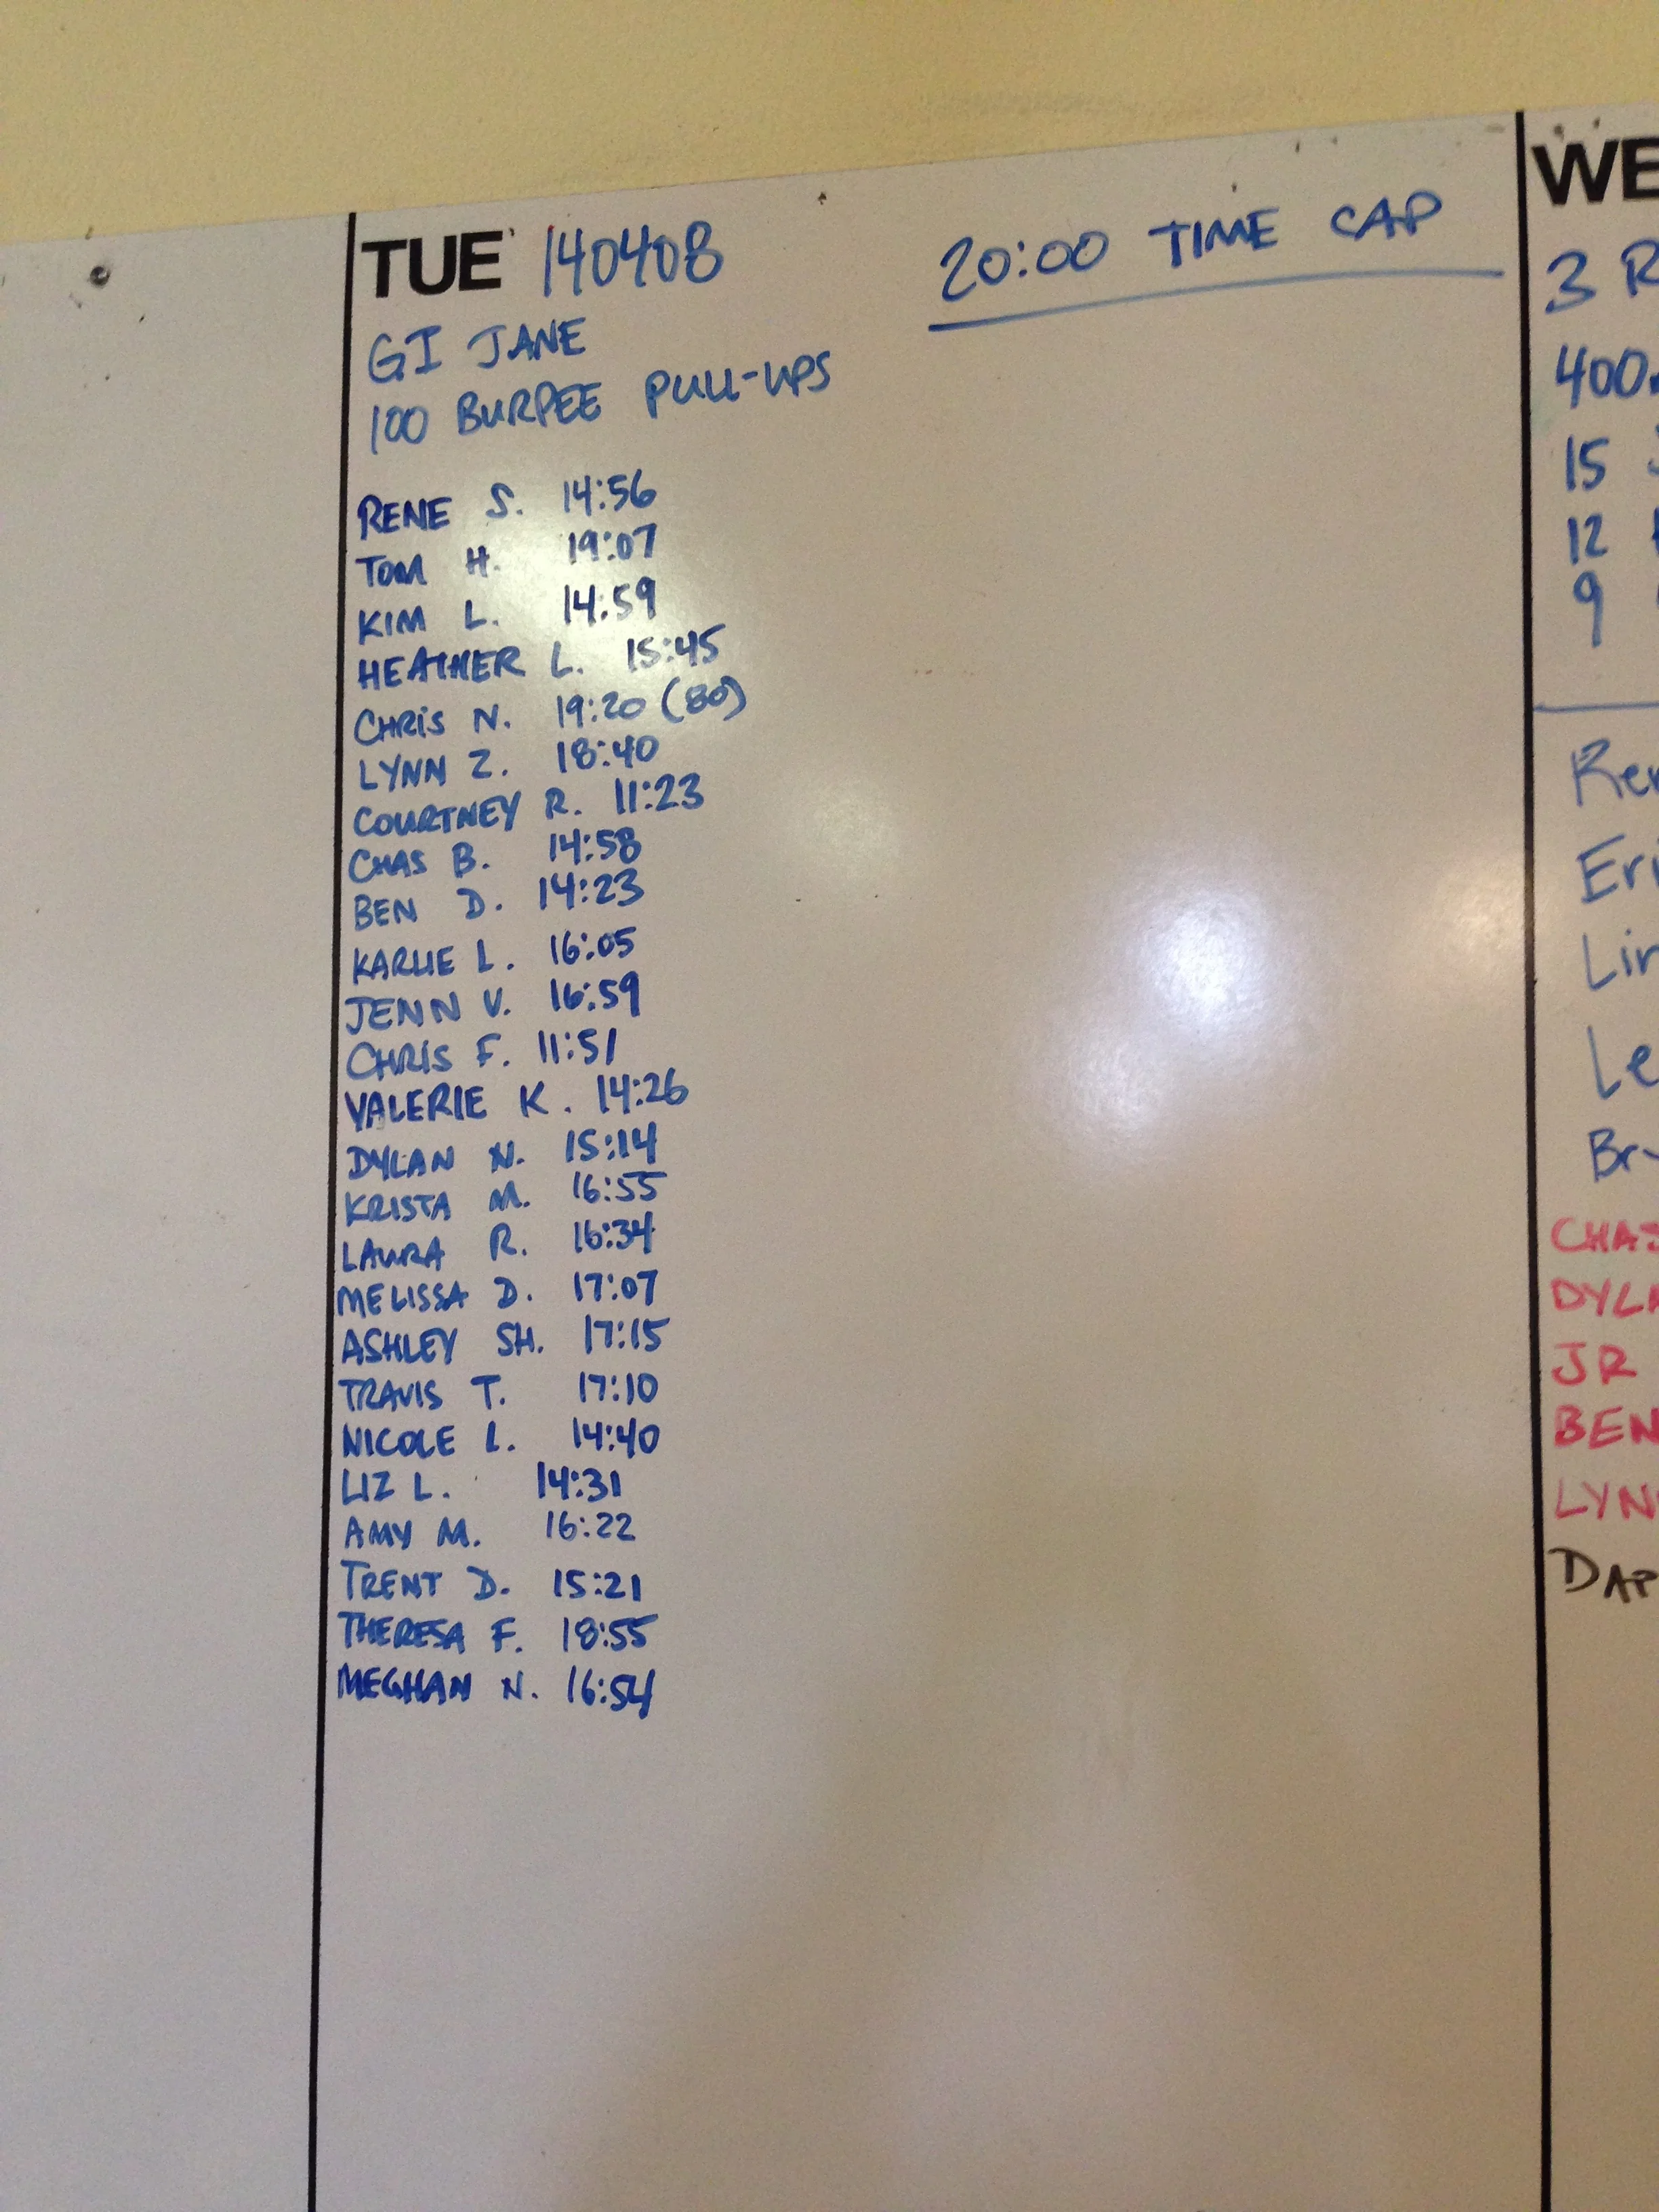 TUE 140408
20:00 TIME CAP
GI JANE
100 BURPEE PULL-UPS
RENE S. 14:56
TOM H. 19:07
KIM L. 14:59
HEATHER L. 15:45
CHRIS N. 19:20 (80)
LYNN Z. 18:40
COURTNEY R. 11:23
CHAS B. 14:58
BEN D. 14:23
KARLIE L. 16:05
JENN V. 16:59
CHRIS F. 11:51
VALERIE K. 14:26
DYLAN N. 15:14
KRISTA M. 16:55
LAURA R. 16:34
MELISSA D. 17:07
ASHLEY SH. 17:15
TRAVIS T. 17:10
NICOLE L. 14:40
LIZ L. 14:31
AMY M. 16:22
TRENT D. 15:21
THERESA F. 18:55
MEGHAN N. 16:54
WE
3 R
400
15
12
9
Ren
Eri
Lin
Le
Br
CHAS
DYLA
JR
BEN
LYN
DAP